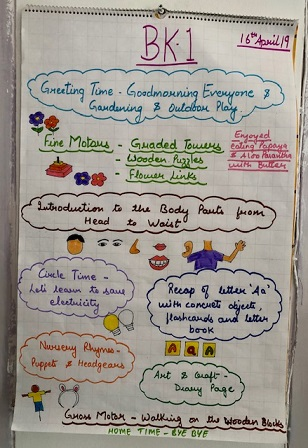 BK-1
16th April 19
Greeting Time - Goodmorning Everyone &
Gardening & Outdoor Play.
Fine Motors - Graded Towers
- Wooden Puzzles
- Flower Links
Enjoyed
eating Papaya
& Aloo Parantha
with Butter
Introduction to the Body Parts from
Head to Waist
Circle Time -
Loti learn to save
electricity
Recap of letter 'Aa'
with concrete object,
flashcards and letter
book
Nursery Rhymes -
Puppets & Headgears
A a A
Art & Craft -
Diary Page
Gross Motor - Walking on the Wooden Blocks
HOME TIME - BYE BYE